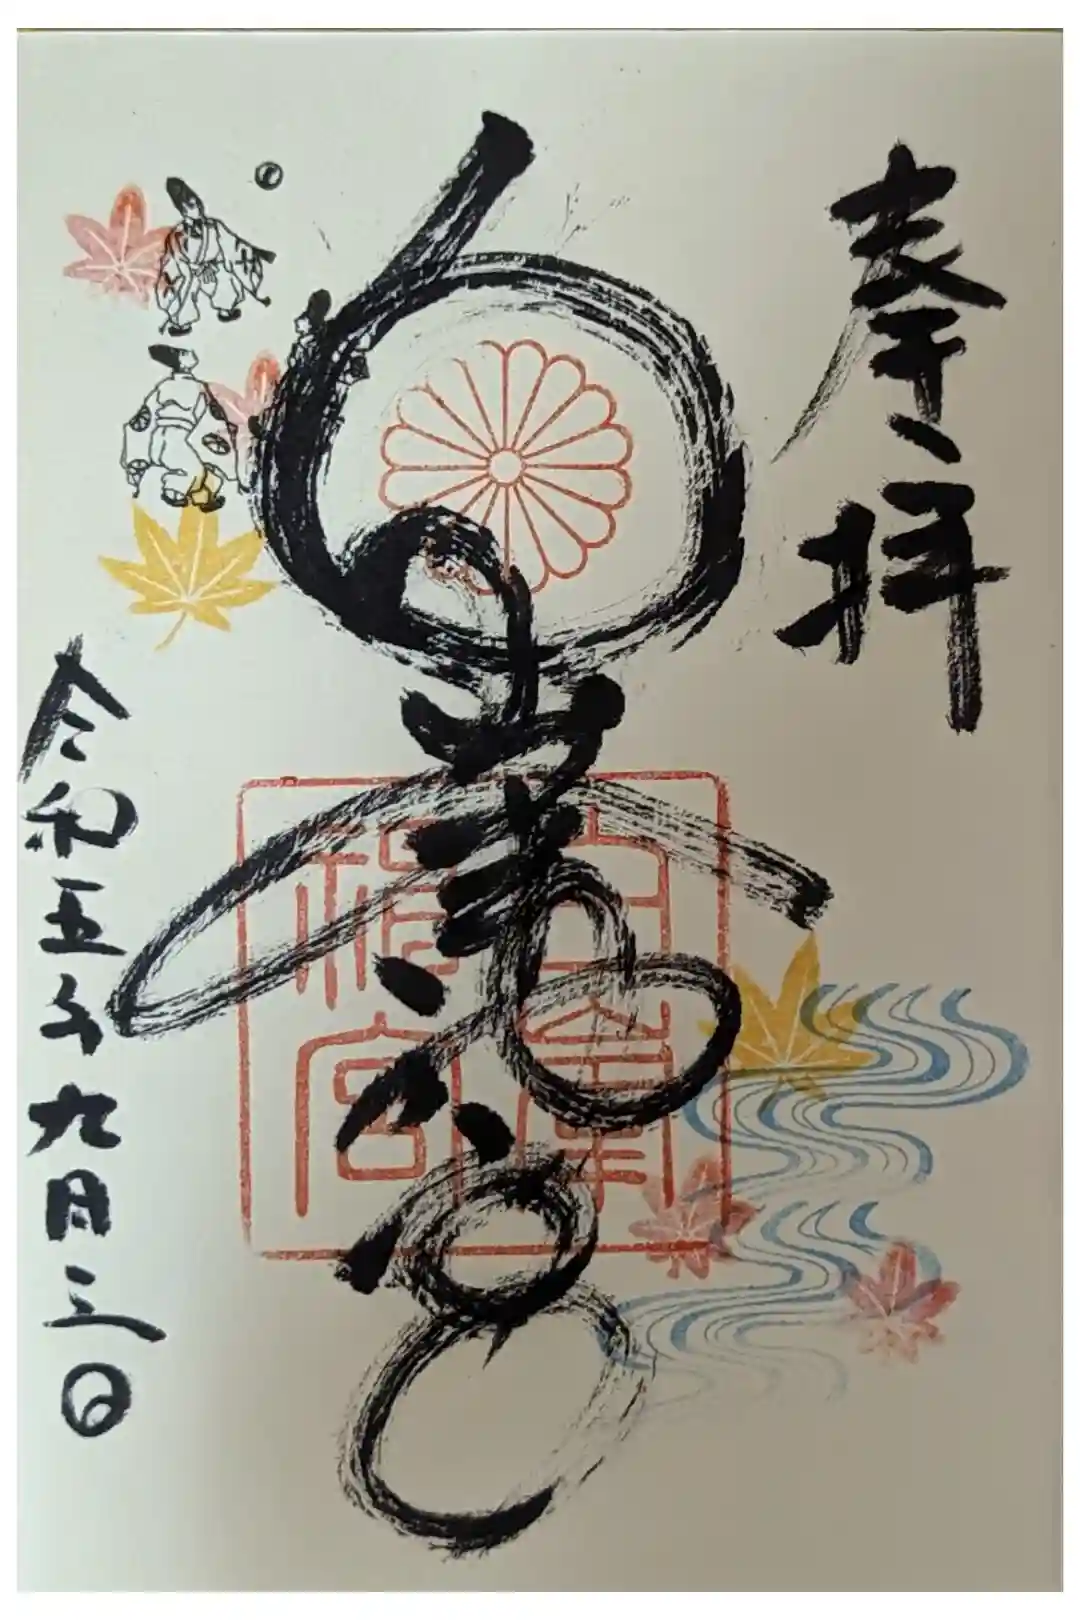 奉拝
白峯神宮
白峯
神宮
令和五年九月三日